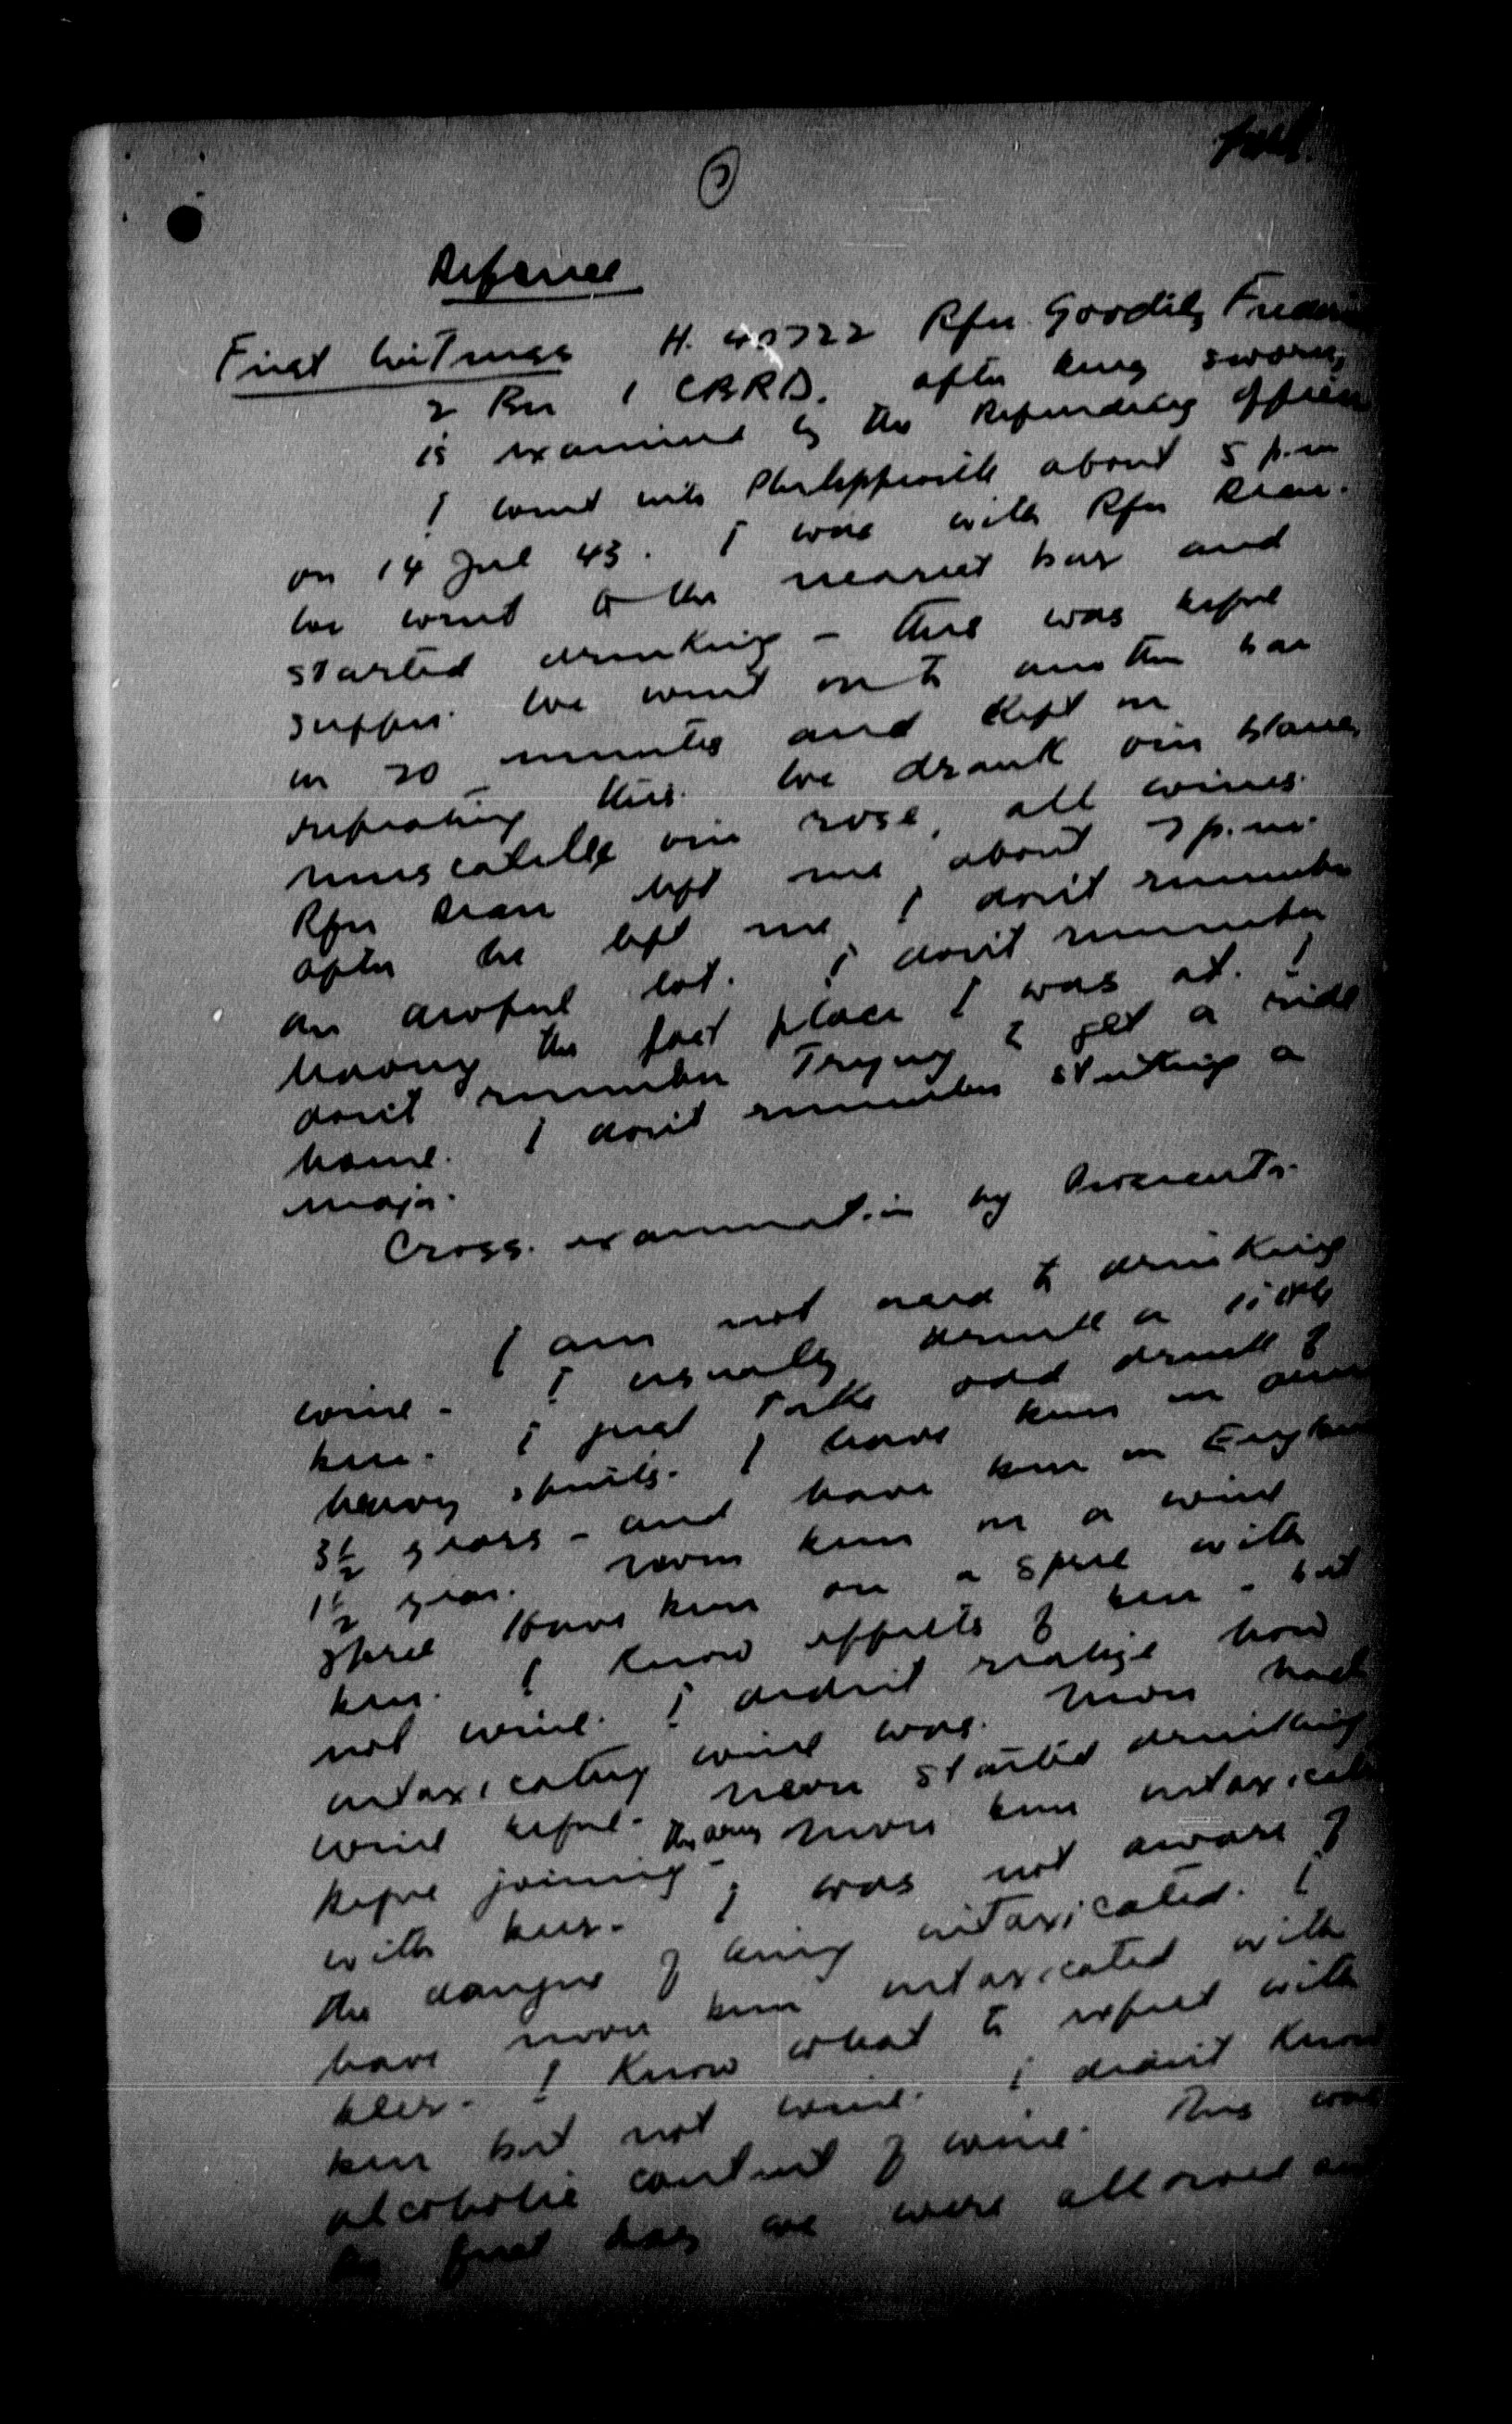 Defence
First Witness H. 40722 Rfn. Goodily Frederi
2 Bn 1 CBRD. after being sworn,
is examined by the Defending Officer
I went into Philippeville about 5 p.m
on 14 Jul 43. I was with Rfn Dean.
We went to the nearest bar and
started drinking - this was before
supper. We went on to another bar
in 20 minutes and kept on
repeating this. We drank vin blanc,
muscatelle vin rose, all wines.
Rfn Dean left me about 7 p.m.
After he left me I don't remember
an awful lot. I don't remember
leaving the last place I was at. I
don't remember Trying to get a ride
home. I don't remember striking a
major.
Cross. examination by Prosecutor.
I am not used to drinking
wine. I usually drink a little
beer. I just take odd drink of
heavy spirits. I have been in army
3½ years - and have been in England
1½ year. never been on a wine
spree. Have been on a spree with
beer. I know effects of beer - but
not wine. I didn't realize how
intoxicating wine was. Never had
wine before. never started drinking
before joining army. Never been intoxicated
with beer. I was not aware of
the danger of being intoxicated. I
have never been intoxicated with
beer. I know what to expect with
beer but not wine. I didn't know
alcoholic content of wine. This was
the first day we were allowed